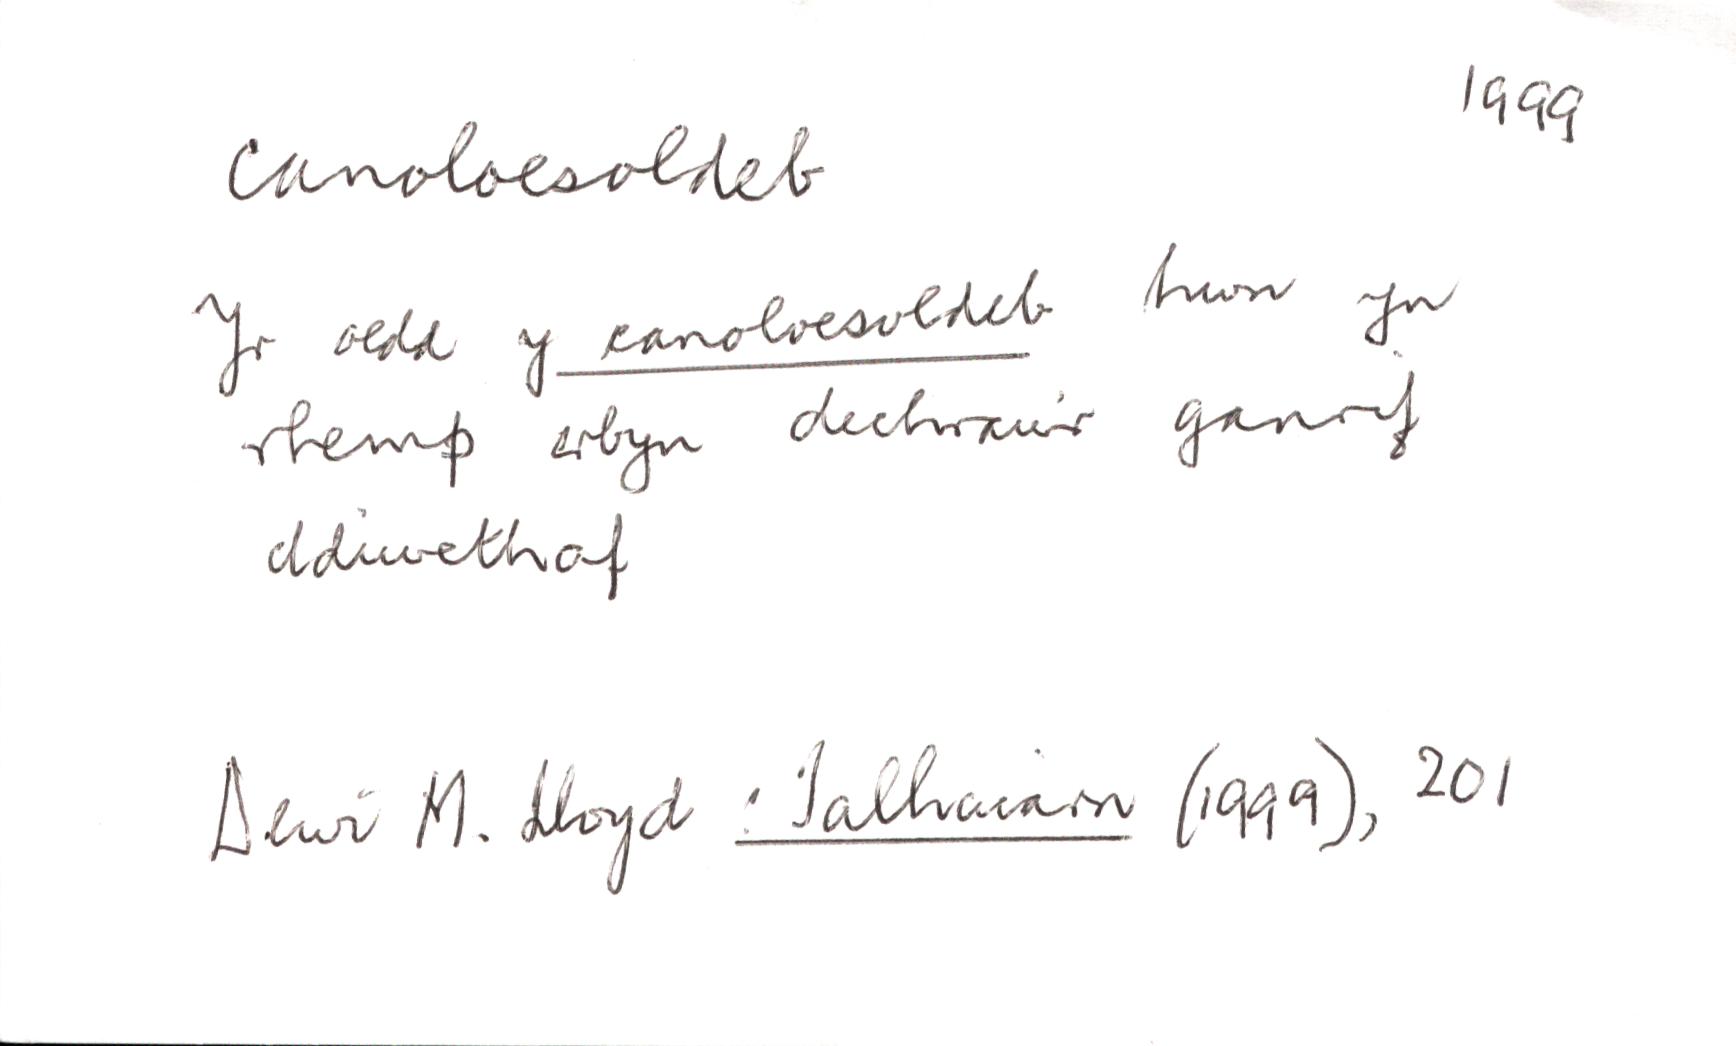 1999
canoloesoldeb
Yr oedd y canoloesoldeb hwn yn
rhemp erbyn dechrau'r ganrif
ddiwethaf
Dewi M. Lloyd : Talhaiarn (1999), 201